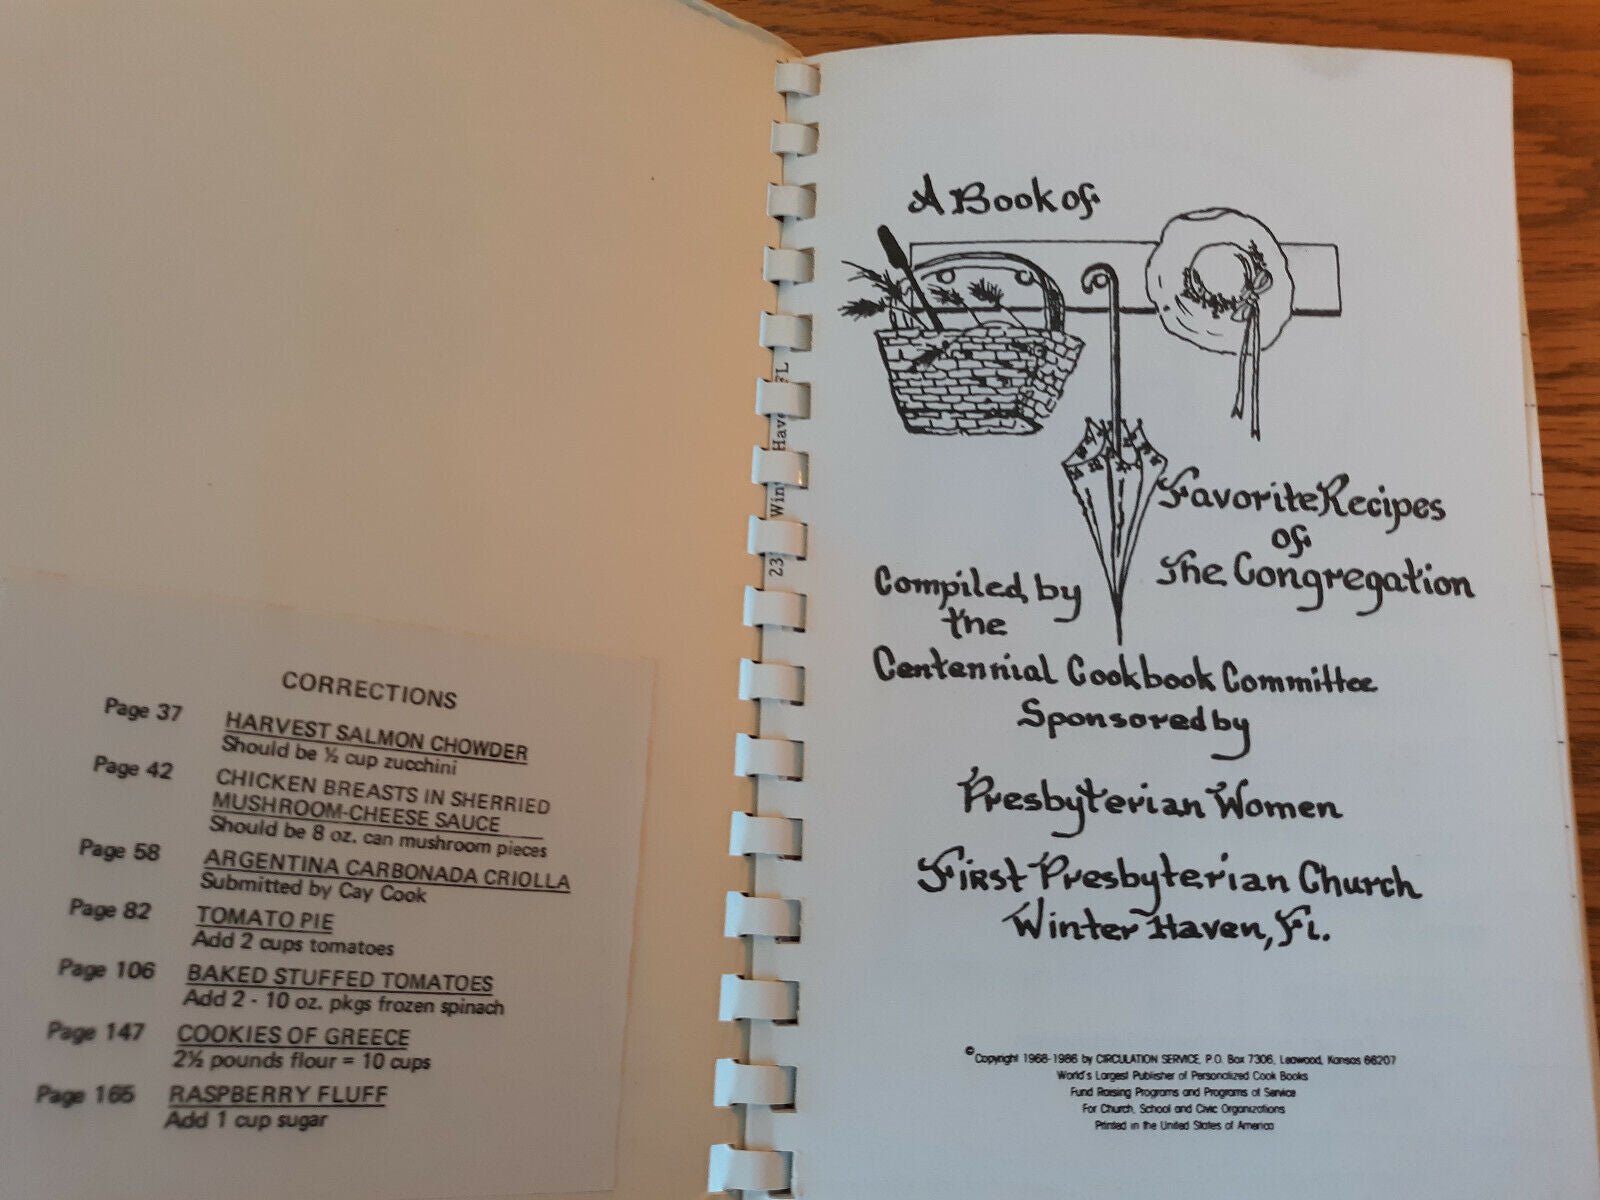 CORRECTIONS
Page 37 HARVEST SALMON CHOWDER
Should be ½ cup zucchini
Page 42 CHICKEN BREASTS IN SHERRIED
MUSHROOM-CHEESE SAUCE
Should be 8 oz. can mushroom pieces
Page 58 ARGENTINA CARBONADA CRIOLLA
Submitted by Cay Cook
Page 82 TOMATO PIE
Add 2 cups tomatoes
Page 106 BAKED STUFFED TOMATOES
Add 2 - 10 oz. pkgs frozen spinach
Page 147 COOKIES OF GREECE
2½ pounds flour = 10 cups
Page 165 RASPBERRY FLUFF
Add 1 cup sugar
23 Win Have FL
A Book of
Favorite Recipes
of
The Congregation
Compiled by
the
Centennial Cookbook Committee
Sponsored by
Presbyterian Women
First Presbyterian Church
Winter Haven, Fl.
© Copyright 1968-1986 by CIRCULATION SERVICE, P.O. Box 7306, Leawood, Kansas 66207
World's Largest Publisher of Personalized Cook Books
Fund Raising Programs and Programs of Service
For Church, School and Civic Organizations
Printed in the United States of America